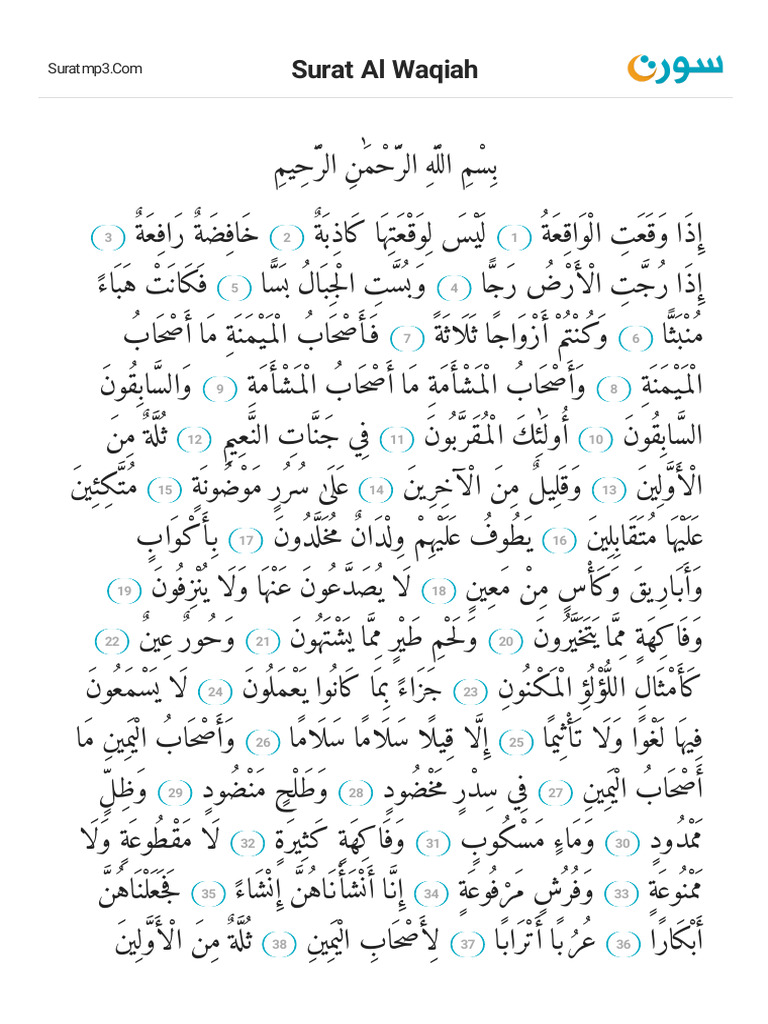 Suratmp3.Com
Surat Al Waqiah
سورن
بِسْمِ اللَّهِ الرَّحْمَٰنِ الرَّحِيمِ
إِذَا وَقَعَتِ الْوَاقِعَةُ (1) لَيْسَ لِوَقْعَتِهَا كَاذِبَةٌ (2) خَافِضَةٌ رَافِعَةٌ (3)
إِذَا رُجَّتِ الْأَرْضُ رَجًّا (4) وَبُسَّتِ الْجِبَالُ بَسًّا (5) فَكَانَتْ هَبَاءً
مُنْبَثًّا (6) وَكُنْتُمْ أَزْوَاجًا ثَلَاثَةً (7) فَأَصْحَابُ الْمَيْمَنَةِ مَا أَصْحَابُ
الْمَيْمَنَةِ (8) وَأَصْحَابُ الْمَشْأَمَةِ مَا أَصْحَابُ الْمَشْأَمَةِ (9) وَالسَّابِقُونَ
السَّابِقُونَ (10) أُولَٰئِكَ الْمُقَرَّبُونَ (11) فِي جَنَّاتِ النَّعِيمِ (12) ثُلَّةٌ مِنَ
الْأَوَّلِينَ (13) وَقَلِيلٌ مِنَ الْآخِرِينَ (14) عَلَىٰ سُرُرٍ مَوْضُونَةٍ (15) مُتَّكِئِينَ
عَلَيْهَا مُتَقَابِلِينَ (16) يَطُوفُ عَلَيْهِمْ وِلْدَانٌ مُخَلَّدُونَ (17) بِأَكْوَابٍ
وَأَبَارِيقَ وَكَأْسٍ مِنْ مَعِينٍ (18) لَا يُصَدَّعُونَ عَنْهَا وَلَا يُنْزِفُونَ (19)
وَفَاكِهَةٍ مِمَّا يَتَخَيَّرُونَ (20) وَلَحْمِ طَيْرٍ مِمَّا يَشْتَهُونَ (21) وَحُورٌ عِينٌ (22)
كَأَمْثَالِ اللُّؤْلُؤِ الْمَكْنُونِ (23) جَزَاءً بِمَا كَانُوا يَعْمَلُونَ (24) لَا يَسْمَعُونَ
فِيهَا لَغْوًا وَلَا تَأْثِيمًا (25) إِلَّا قِيلًا سَلَامًا سَلَامًا (26) وَأَصْحَابُ الْيَمِينِ مَا
أَصْحَابُ الْيَمِينِ (27) فِي سِدْرٍ مَخْضُودٍ (28) وَطَلْحٍ مَنْضُودٍ (29) وَظِلٍّ
مَمْدُودٍ (30) وَمَاءٍ مَسْكُوبٍ (31) وَفَاكِهَةٍ كَثِيرَةٍ (32) لَا مَقْطُوعَةٍ وَلَا
مَمْنُوعَةٍ (33) وَفُرُشٍ مَرْفُوعَةٍ (34) إِنَّا أَنْشَأْنَاهُنَّ إِنْشَاءً (35) فَجَعَلْنَاهُنَّ
أَبْكَارًا (36) عُرُبًا أَتْرَابًا (37) لِأَصْحَابِ الْيَمِينِ (38) ثُلَّةٌ مِنَ الْأَوَّلِينَ